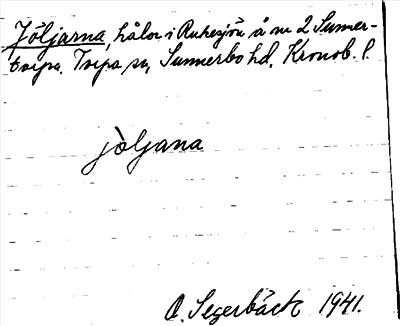 Jöljarna, hålor i Ruhesjön å nr 2 Sunner-
torpa. Torpa sn, Sunnerbo hd, Kronob. l.
jòljana
O. Segerbäck 1941.